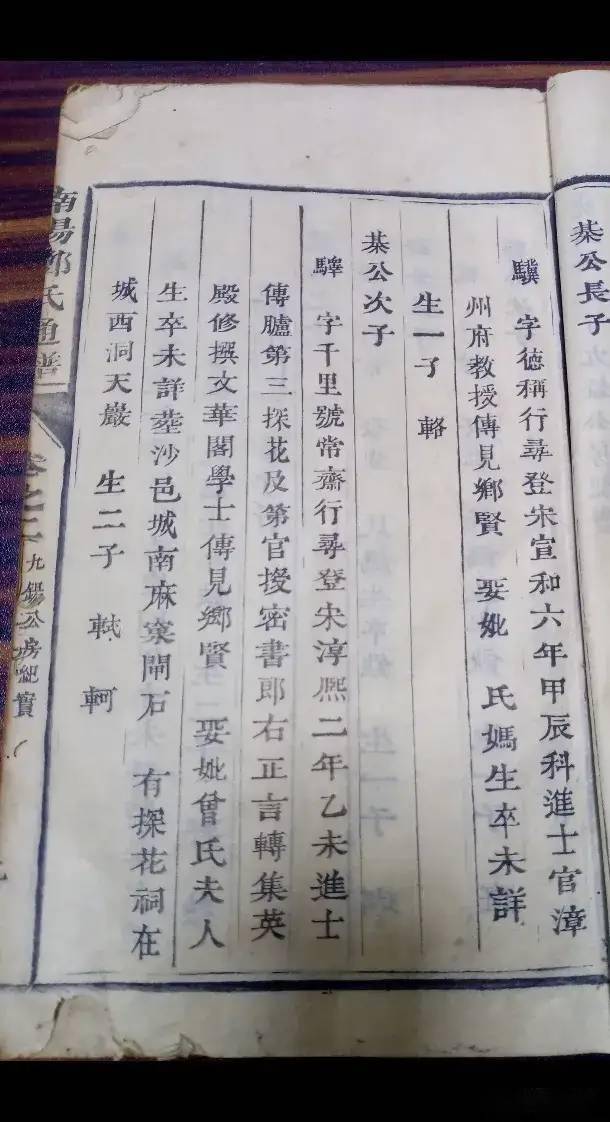 棊公長子
驥 字德稱行尋登宋宣和六年甲辰科進士官漳
州府教授傳見鄉賢 娶妣 氏媽生卒未詳
生一子 輅
棊公次子
驛 字千里號常齋行尋登宋淳熙二年乙未進士
傳臚第三探花及第官授密書郎右正言轉集英
殿修撰文華閣學士傳見鄉賢 娶妣曾氏夫人
生卒未詳塟沙邑城南麻寀閘石 有探花祠在
城西洞天巖 生二子 軾 軻
南陽鄧氏通譜
卷之二 九錫公房紀實